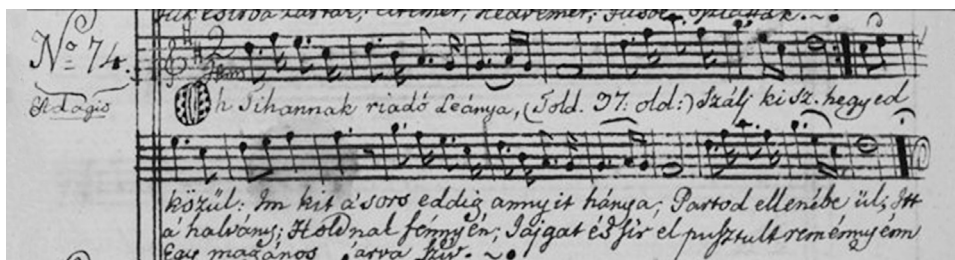 kedvemet,
No 74.
Adagio
Oh Tihannak riadó Leánya, (Told. 37: old:) Szálj ki sz. hegyed
közül: Im kit a' sors eddig annyit hánya, Partod ellenébe ül; Itt
a' halvány; Holdnak fénnyén; Jajgat és sir el pusztult reménnyénn
Egy magános árva szív.